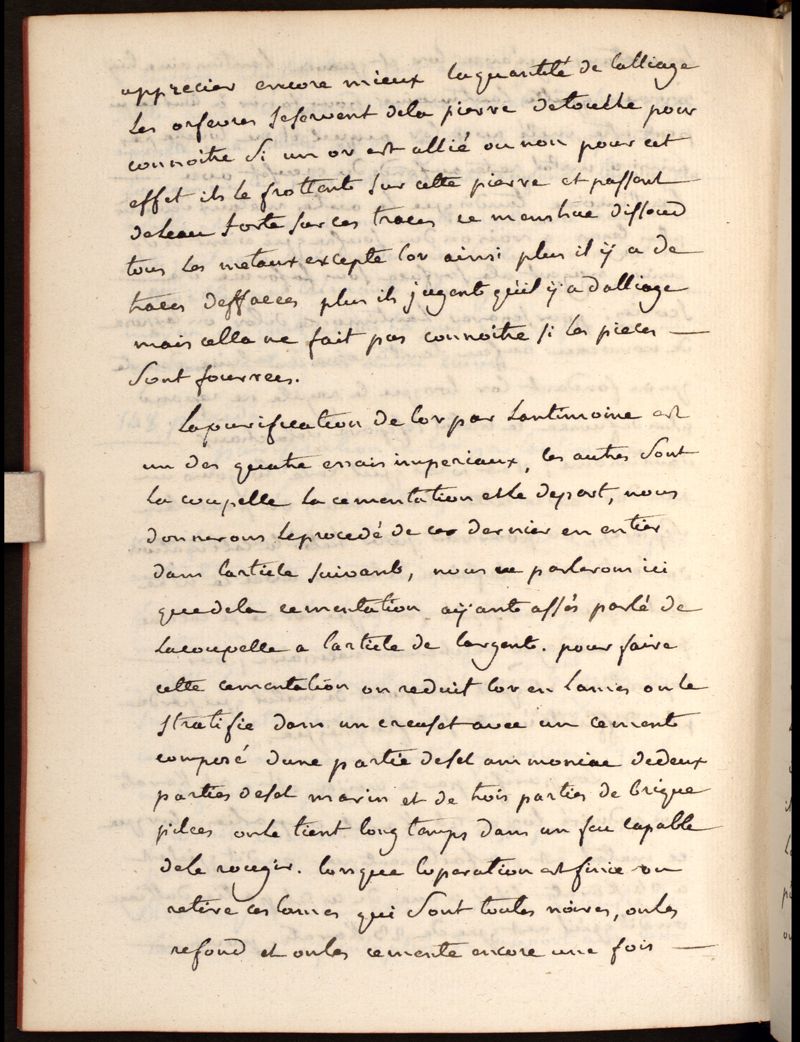 apprecier encore mieux laquantité de lalliage
Les orfevres seservent dela pierre detouche pour
connoitre si un or est allié ou non pour cet
effet ils le frottent sur cette pierre et passent
deleau forte sur ces traces ce menstrue dissoud
tous les metaux excepté lor ainsi plus il ÿ a de
traces deffacees plus ils jugent quil ÿ a dalliage
mais cella ne fait pas connoitre si les pieces —
sont fourrees.
Lapurification de lor par lantimoine est
un des quatre essais imperiaux, les autres sont
la coupelle la cementation et le depart, nous
donnerons leprocedé de ce dernier en entier
dans larticle suivant, nous ne parlerons ici
que dela cementation aÿant assés parlé de
lacoupelle a larticle de largent. pour faire
cette cementation on reduit lor en lames on le
stratifie dans un creuset avec un cement
composé dune partie desel ammoniac dedeux
parties desel marin et de trois parties de brique
pilees on le tient long tamps dans un feu capable
dele rougir. lorsque loperation est finie on
retire ces lames qui sont toutes noires, on les
refond et on les cemente encore une fois —